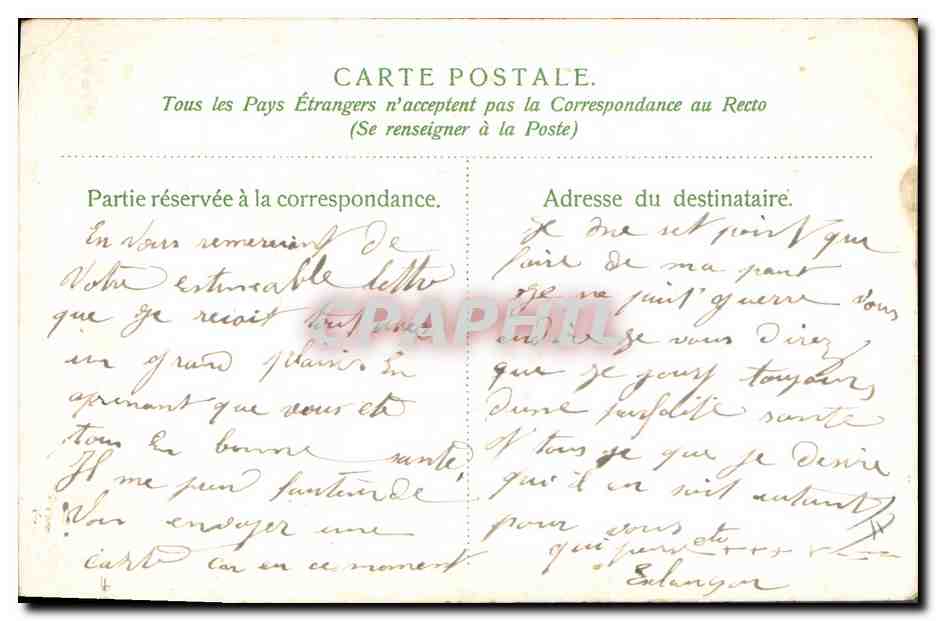 CARTE POSTALE.
Tous les Pays Étrangers n'acceptent pas la Correspondance au Recto
(Se renseigner à la Poste)
Partie réservée à la correspondance.
En vous remerciant de
Votre estimable lettre
que je reçoit tout avec
un grand plaisir En
aprenant que vous ete
tous En bonne santé
Il me peu
Vou envoyer une
carte car en ce moment
Adresse du destinataire.
Je me set point que
faire de ma part
Je ne puit guerre vous
je vous direz
que je jouis toujours
d'une parfaite santé
que je desire
qui il en soit autant
pour vous
qui
CPAPHIL